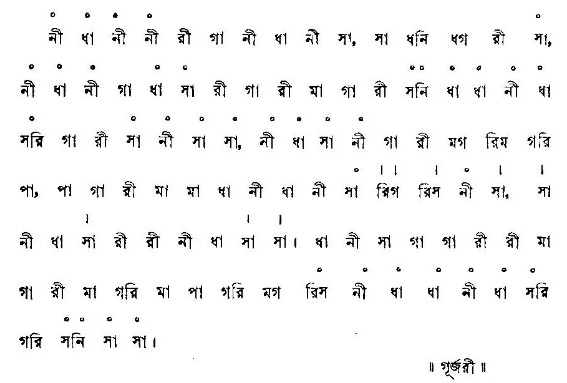 নী ধা নী নী রী গা নী ধা নী সা, সা ধনি ধগ রী সা,
নী ধা নী গা ধা সা রী গা রী মা গা রী সনি ধা ধা নী ধা
সরি গা রী সা নী সা সা, নী ধা সা নী গা রী মগ রিম গরি
পা, পা গা রী মা মা ধা নী ধা নী সা রিগ রিস নী সা, সা
নী ধা সা রী রী নী ধা সা সা। ধা নী সা গা গা রী রী মা
গা রী মা গরি মা পা গরি মগ রিস নী ধা ধা নী ধা সরি
গরি সনি সা সা।
॥ গূর্জরী ॥